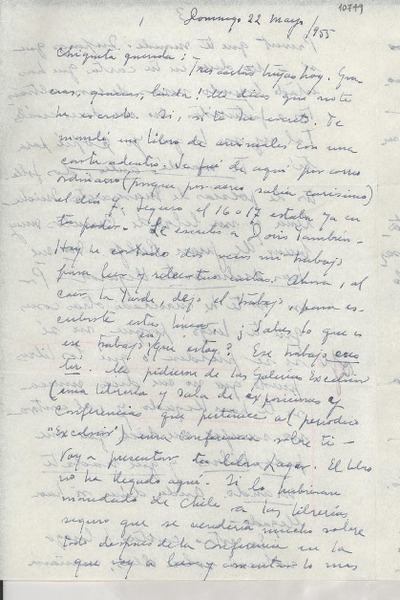 10749
Domingo 22 Mayo/955
Chiquita querida:
Tres cartas tuyas hoy. Gra-
cias, gracias, linda! Me dices que no te
he escrito. Si, si te he escrito. Te
mandé un libro de animales con una
carta adentro. Se fué de aquí por correo
ordinario (porque por aereo salía carísimo)
el día 7. Seguro el 16 o 17 estaba ya en
tu poder. Le escribo a Doris también.
Hoy he cortado dos veces mi trabajo
para leer y releer tus cartas. Ahora, al
caer la tarde, dejo el trabajo, para es-
cribirte estas líneas. ¿Sabes lo que es
ese trabajo que estoy? Ese trabajo eres
tú. Me pidieron de las Galerías Excelsior
(una librería y sala de exposiciones y
conferencias que pertenece al periodico
"Excelsior") una conferencia sobre ti
Voy a presentar tu libro Lagar. El libro
no ha llegado aquí. Si lo hubieran
mandado de Chile a las librerías
seguro que se vendería mucho sobre
todo despues de la conferencia en la
que voy a leer y comentar lo mas